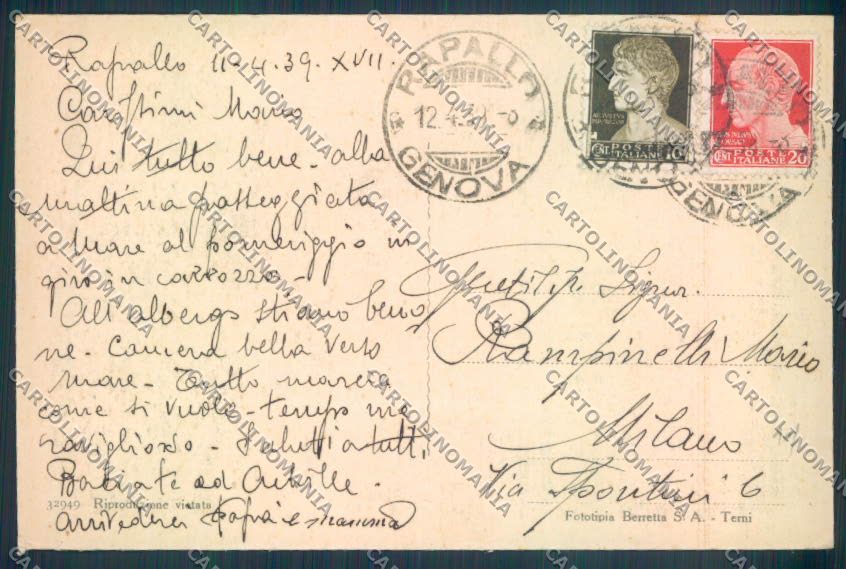 Rapallo 11-4-39-XVII.
Carissimi Mario
Qui tutto bene - alla
mattina passeggiata
a mare al pomeriggio in
giro in carrozza -
All'albergo stiamo beno
ne - camera bella verso
mare - Tutto marcia
come si vuole - tempo me
raviglioso - Saluti a tutti
Baciate ad
arrivederci papà e mamma
RAPALLO
12.4.39
GENOVA
POSTE
ITALIANE
CENT. 10
POSTE
ITALIANE
CENT. 20
GENOVA
Signor
Rampinelli Mario
Milano
Via Spontini 6
32949 Riproduzione vietata
Fototipia Berretta S. A. - Terni
CARTOLINOMANIA